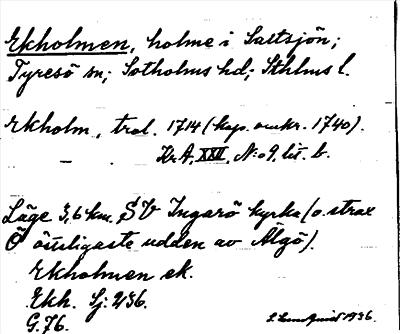 Ekholmen, holme i Saltsjön;
Tyresö sn; Sotholms hd; Sthlms l.
Ekholm, trol. 1714 (kop. omkr. 1740).
— Kr A, XXII, N:o 9, lit. b.
Läge 3,6 km. SV Ingarö kyrka (o. strax
Ö östligaste udden av Älgö).
Ekholmen ek.
Ekh. Sj: 236.
G. 76.
1936.